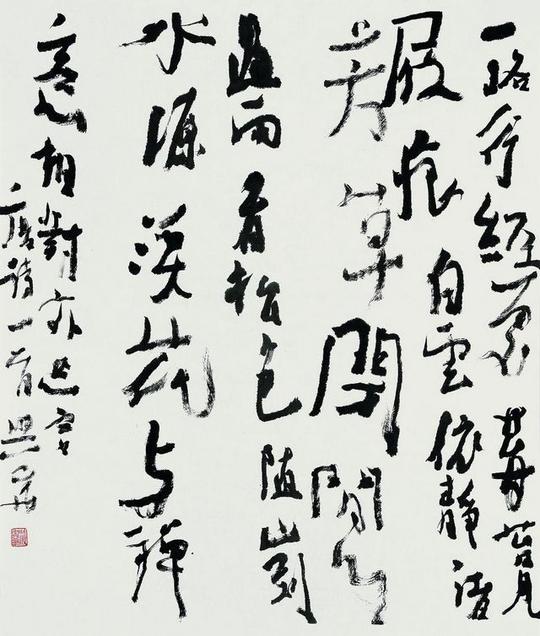 一路行經處莓苔見
屐痕白雲依靜渚
芳草閉閒門
過雨看松色隨山到
水源溪花与禪
意相對亦忘言
唐詩一首